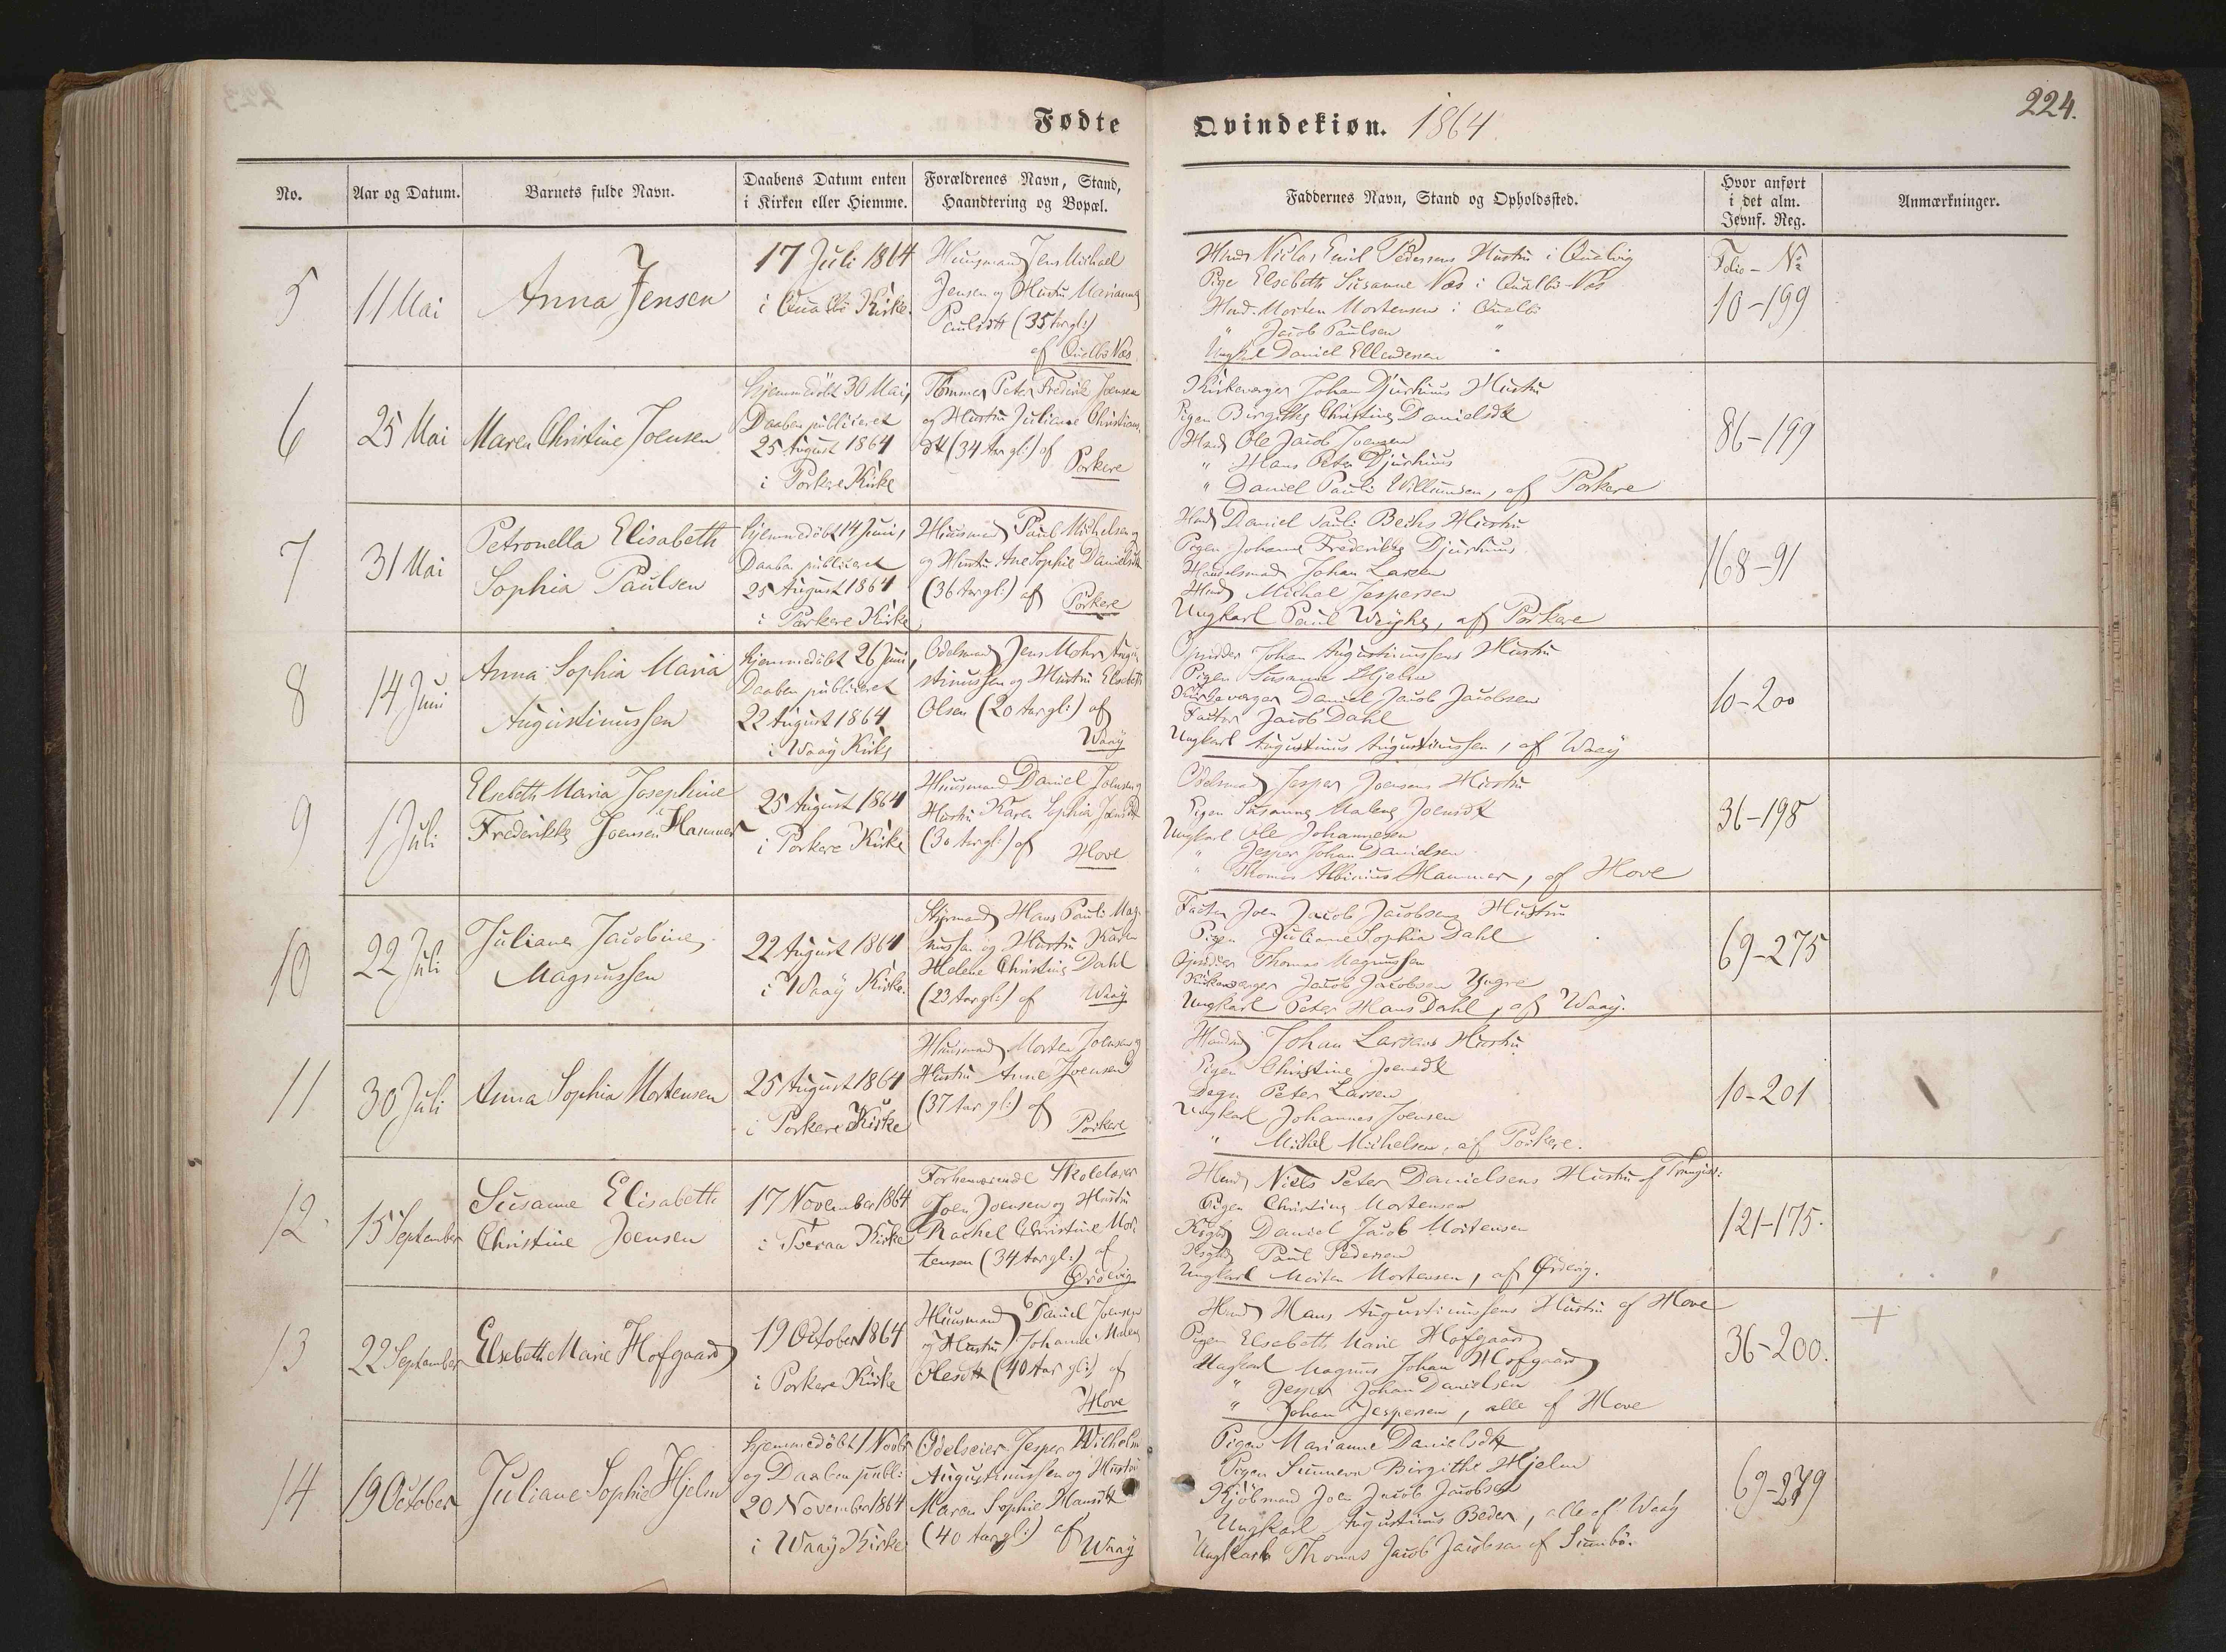 Fødte
Qvindekiøn. 1864
224.
No.
Aar og Datum.
Barnets fulde Navn.
Daabens Datum enten
i Kirken eller Hiemme.
Forældrenes Navn, Stand,
Haandtering og Bopæl.
Faddernes Navn, Stand og Opholdssted.
Hvor anført
i det alm.
Jevnf. Reg.
Anmærkninger.
5
11 Mai
Anna Jensen
17 Juli 1864
i Qualbö Kirke.
Huusmand Jens Michael
Jensen og Hustru Marianne
Paulsdtr (35 Aar gl:)
af Qualbö Næs.
Hmd. Niclas Emil Pedersens Hustru i Qualvig
Pige Elsebeth Susanne Næs i Qualbö Næs
Hmd. Morten Mortensen i Qualbö
" Jacob Paulsen "
Ungkarl Daniel Ellendersen "
Folio - No
10-199
6
25 Mai
Maren Christine Joensen
Hjemmedöbt 30 Mai,
Daaben publiceret
25 August 1864
i Porkere Kirke
Tömmer Peter Frederik Joensen
og Hustru Julianne Christians
dtr (34 Aar gl:) af
Porkere
Kirkeværger Johan Djurhuus Hustru
Pigen Birgitha Christine Danielsdtr
Hmd. Ole Jacob Joensen
" Hans Peter Djurhuus
" Daniel Pauli Willumsen, af Porkere
86-199
7
31 Mai
Petronella Elisabeth
Sophia Paulsen
Hjemmedöbt 14 Juni,
Daaben publiceret
25 August 1864
i Porkere Kirke
Huusmand Paul Michelsen
og Hustru Ane Sophie Danielsdtr
(36 Aar gl:) af Porkere
Hmd. Daniel Pauli Bechs Hustru
Pigen Johanne Frederikke Djurhuus
Handelsmand Johan Larsen
Hmd. Michal Jespersen
Ungkarl Paul Weyhe, af Porkere
168-91
8
14 Juni
Anna Sophia Maria
Augustinussen
Hjemmedöbt 26 Juni,
Daaben publiceret
22 August 1864
i Waay Kirke
Odelsmand Jens Mohr Augu-
stinussen og Hustru Elsebeth
Olsen (20 Aar gl:) af
Waay
Opsidder Johan Augustinussens Hustru
Pigen Susanne Hjelm
Kirkeværger Daniel Jacob Jacobsen
Factor Jacob Dahl
Ungkarl Augustinus Augustinussen, af Waay
10-200
9
1 Juli
Elsebeth Maria Josephine
Frederikke Joensen Hammer
25 August 1864
i Porkere Kirke
Huusmand Daniel Joensen og
Hustru Karen Sophia Joensdtr
(30 Aar gl:) af Hove
Odelsmand Jesper Joensens Hustru
Pigen Susanne Malene Joensdtr
Ungkarl Ole Johannesen
" Jesper Johan Danielsen
" Thomas Albinius Hammer, af Hove
36-198
10
22 Juli
Juliane Jacobine
Magnussen
22 August 1864
i Waay Kirke.
Styrmand Hans Pauli Mag-
nussen og Hustru Karen
Helene Christine Dahl
(23 Aar gl:) af Waay
Factor Joen Jacob Jacobsens Hustru
Pigen Juliane Sophia Dahl
Opsidder Thomas Magnussen
Kirkeværger Jacob Jacobsen Yngre
Ungkarl Peter Hans Dahl, af Waay.
69-275
11
30 Juli
Anna Sophia Mortensen
25 August 1864
i Porkere Kirke
Huusmand Morten Joensen og
Hustru Anne Joensen
(37 Aar gl:) af
Porkere
Handelsmd Johan Larsens Hustru
Pigen Christine Joensdtr
Degn Peter Larsen
Ungkarl Johannes Joensen
" Michel Michelsen, af Porkere.
10-201
12
15 September
Susanne Elisabeth
Christine Joensen
17 November 1864
i Tveraa Kirke
Forhenværende Skolelærer
Joen Joensen og Hustru
Rachel Christine Mor-
tensen (34 Aar gl:) af
Ördevig
Hmd. Niels Peter Danielsens Hustru af Trangisv:
Pigen Christine Mortensen
Kgbd. Daniel Jacob Mortensen
Kgbd. Paul Pedersen
Ungkarl Morten Mortensen, af Ördevig.
121-175.
13
22 September
Elsebeth Marie Hofgaard
19 October 1864
i Porkere Kirke
Huusmand Daniel Joensen
og Hustru Johanne Malene
Olesdtr (40 Aar gl:) af
Hove
Hmd. Hans Augustinussens Hustru af Hove
Pigen Elsebeth Marie Hofgaard
Ungkarl Magnus Johan Hofgaard
" Jesper Johan Danielsen
" Johan Jespersen, alle af Hove
36-200.
+
14
19 October
Juliane Sophie Hjelm
Hjemmedöbt 1 Novbr
og Daaben publ:
20 November 1864
i Waay Kirke
Odelseier Jesper Wilhelm
Augustinussen og Hustru
Maren Sophie Hansdtr
(40 Aar gl:) af Waay
Pigen Marianne Danielsdtr
Pigen Sunneva Birgithe Hjelm
Kjöbmand Joen Jacob Jacobsen
Ungkarl Augustinus Beder, alle af Waay
Ungkarl Thomas Jacob Jacobsen af Sumbö.
69-279